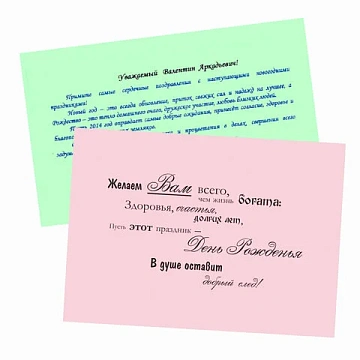 Уважаемый Валентин Аркадьевич!
Примите самые сердечные поздравления с наступающими новогодними
праздниками!
Новый год – это всегда обновления, приток свежих сил и надежд на лучшее, а
Рождество – это тепло домашнего очага, дружеское участие, любовь близких людей.
Пусть 2014 год оправдает самые добрые ожидания, принесёт согласие, здоровье и
благопо
и процветания в делах, свершения всего
задум
Желаем Вам всего,
чем жизнь богата:
Здоровья, счастья,
долгих лет,
Пусть этот праздник –
День Рожденья
В душе оставит
добрый след!